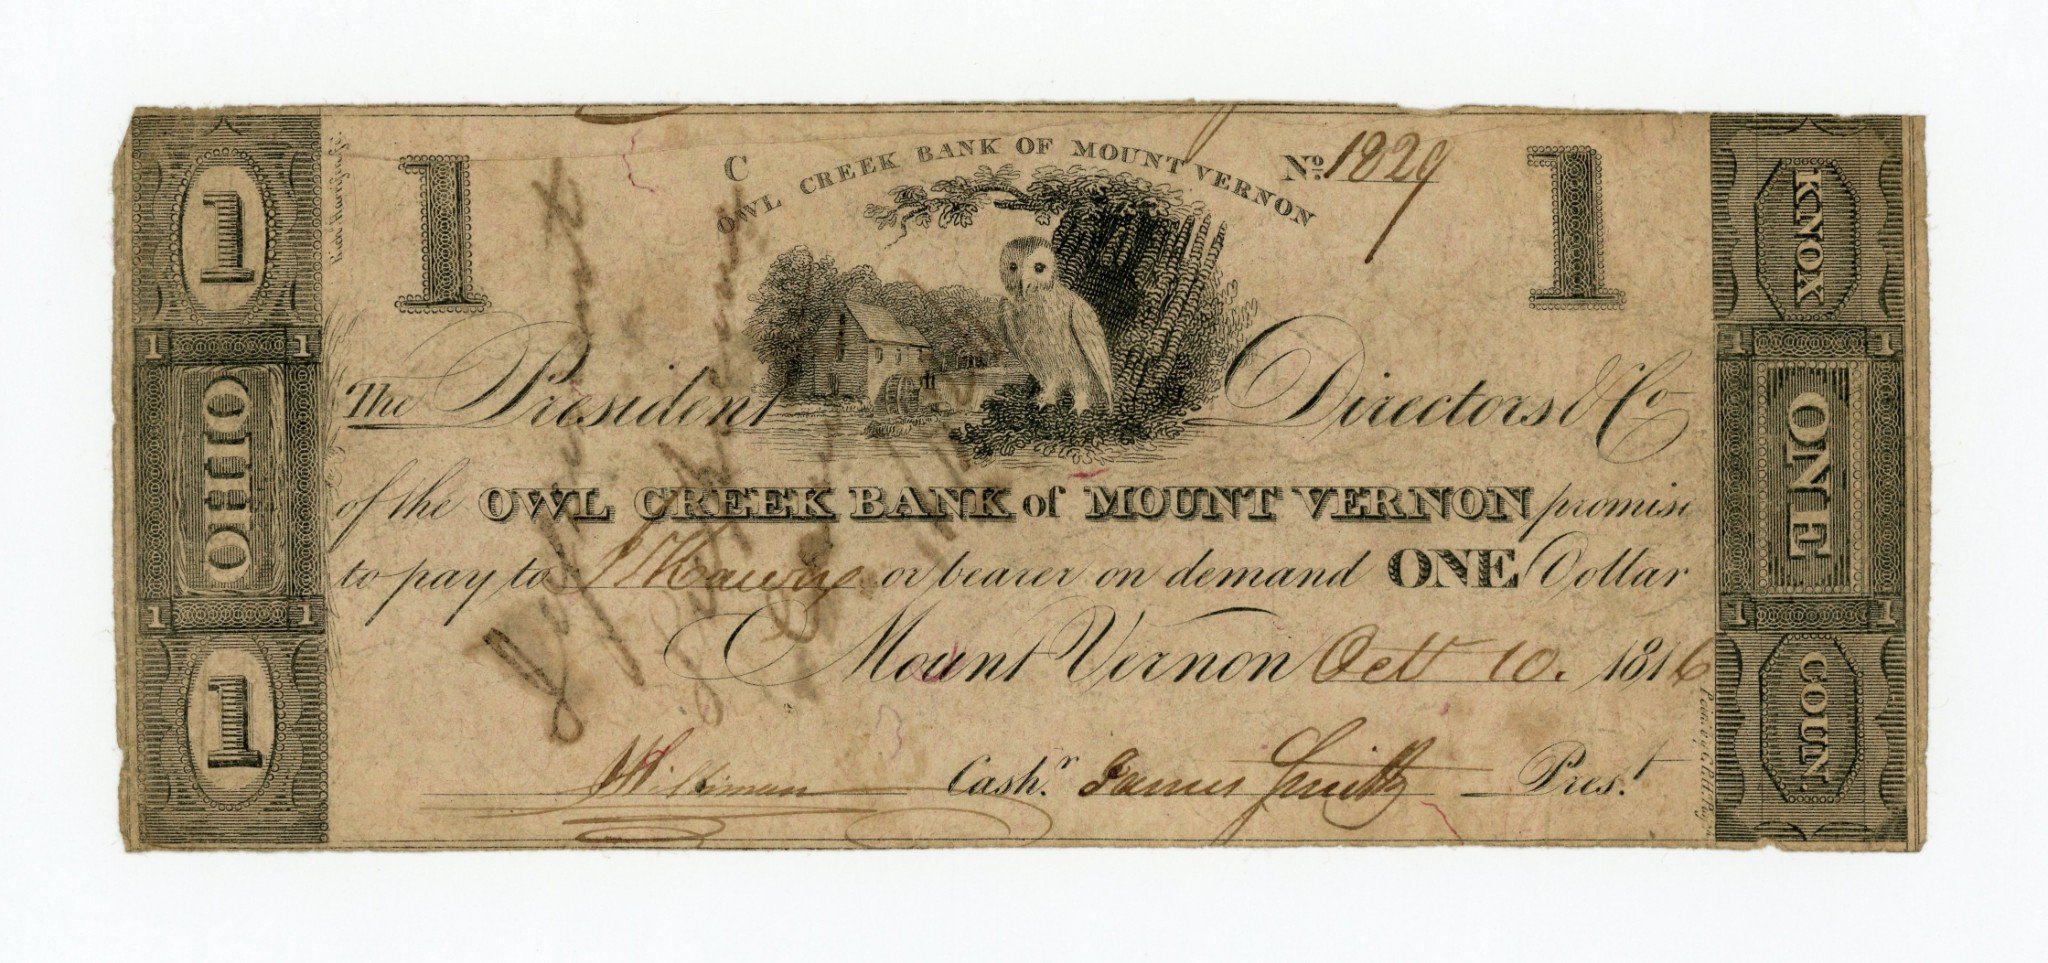 OWL CREEK BANK OF MOUNT VERNON
C
No. 1829
1
1
The President Directors & Co
of the OWL CREEK BANK of MOUNT VERNON promise
to pay to or bearer on demand ONE Dollar
Mount Vernon Oct 10. 1816
Cashr. James Smith Prest.
1
1 1
OHIO
1 1
1
KNOX
1 1
ONE
1 1
COUN.